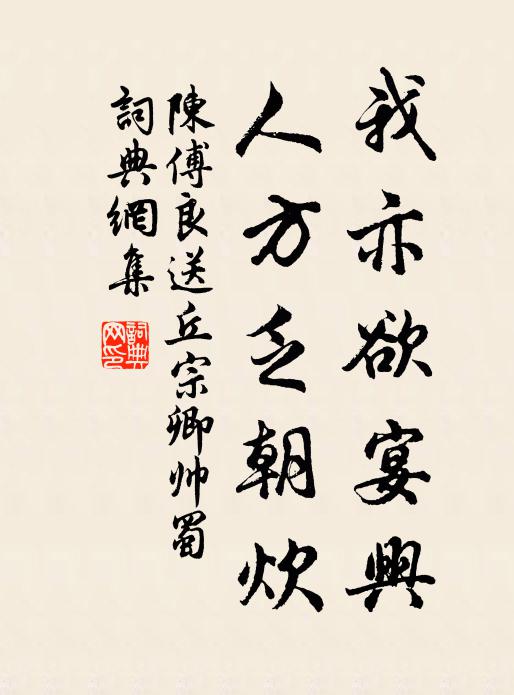 我亦欲宴興
人方乏朝炊
陳傅良送丘宗卿帅蜀
詞典網集
詞典
网印